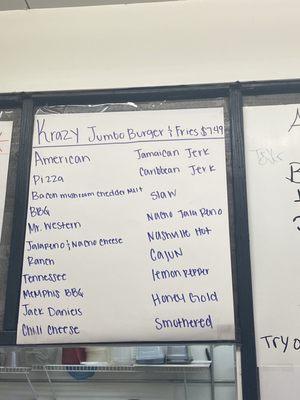 Krazy Jumbo Burger & Fries $7.49
American
Pizza
Bacon mushroom cheddar Malt
BBQ
Mr. Western
Jalapeno & Nacho cheese
Ranch
Tennessee
Memphis BBQ
Jack Daniels
Chili cheese
Jamaican Jerk
Caribbean Jerk
Slaw
Nacho Jalapeno
Nashville Hot
Cajun
lemon Pepper
Honey Gold
Smothered
Try o